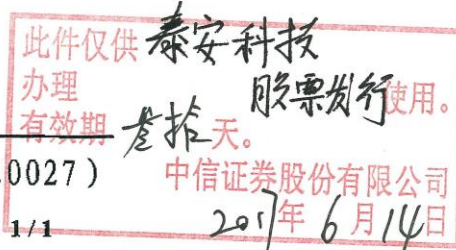 此件仅供泰安科技
办理 股票发行使用。
有效期 叁拾天。
0027）
中信证券股份有限公司
1/1
2017年6月14日